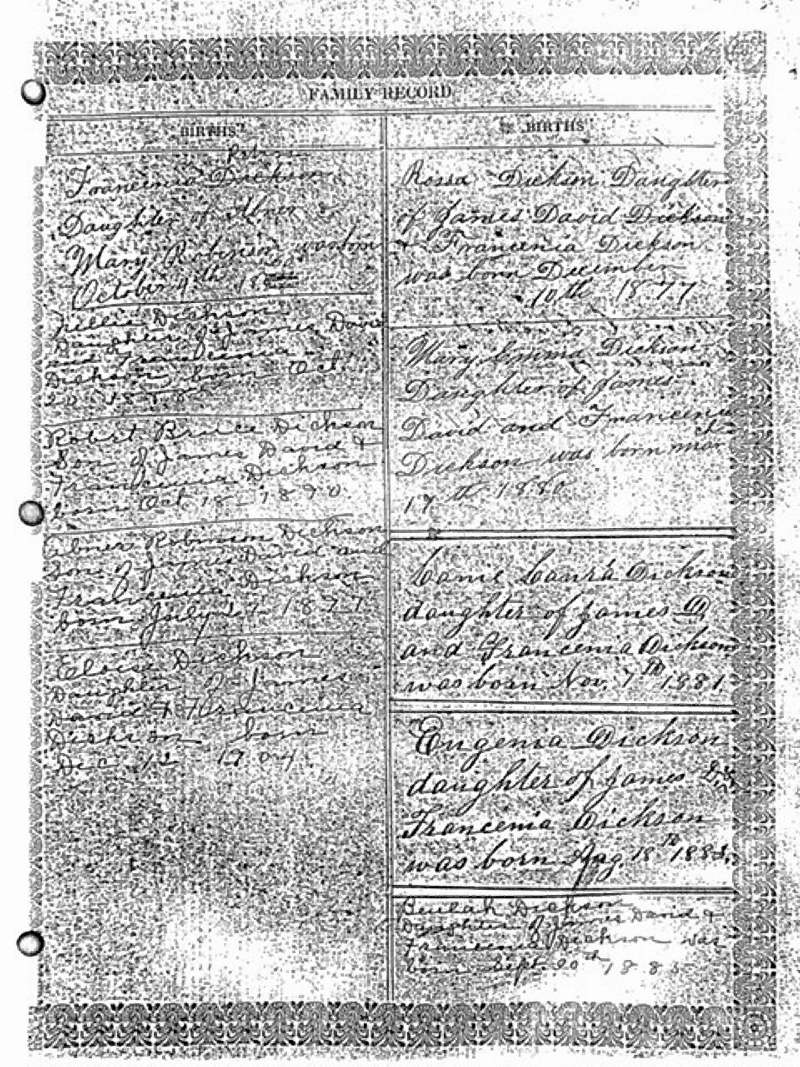 FAMILY RECORD
BIRTHS
Francenia Dickson
Daughter of Abner &
Mary Robinson was born
October 4th 18
Dickson
Daughter of James David
and Francenia
Dickson born Oct
20 18
Robert Bruce Dickson
Son of James David &
Francenia Dickson
born Oct 18 1890
Abner Robinson Dickson
Son of James David and
Francenia Dickson
born July 1897
Eloise Dickson
Daughter of James
David & Francenia
Dickson born
Dec 12 1904
BIRTHS
Rossa Dickson Daughter
of James David Dickson
& Francenia Dickson
was born December
10th 1877
Mary Emma Dickson
Daughter of James
David and Francenia
Dickson was born
17th 1880
Laura Dickson
daughter of James D
and Francenia Dickson
was born Nov. 7th 1881
Eugenia Dickson
daughter of James D &
Francenia Dickson
was born Aug 18th 188
Beulah Dickson
Daughter of James David &
Dickson was
born Sept 20th 188